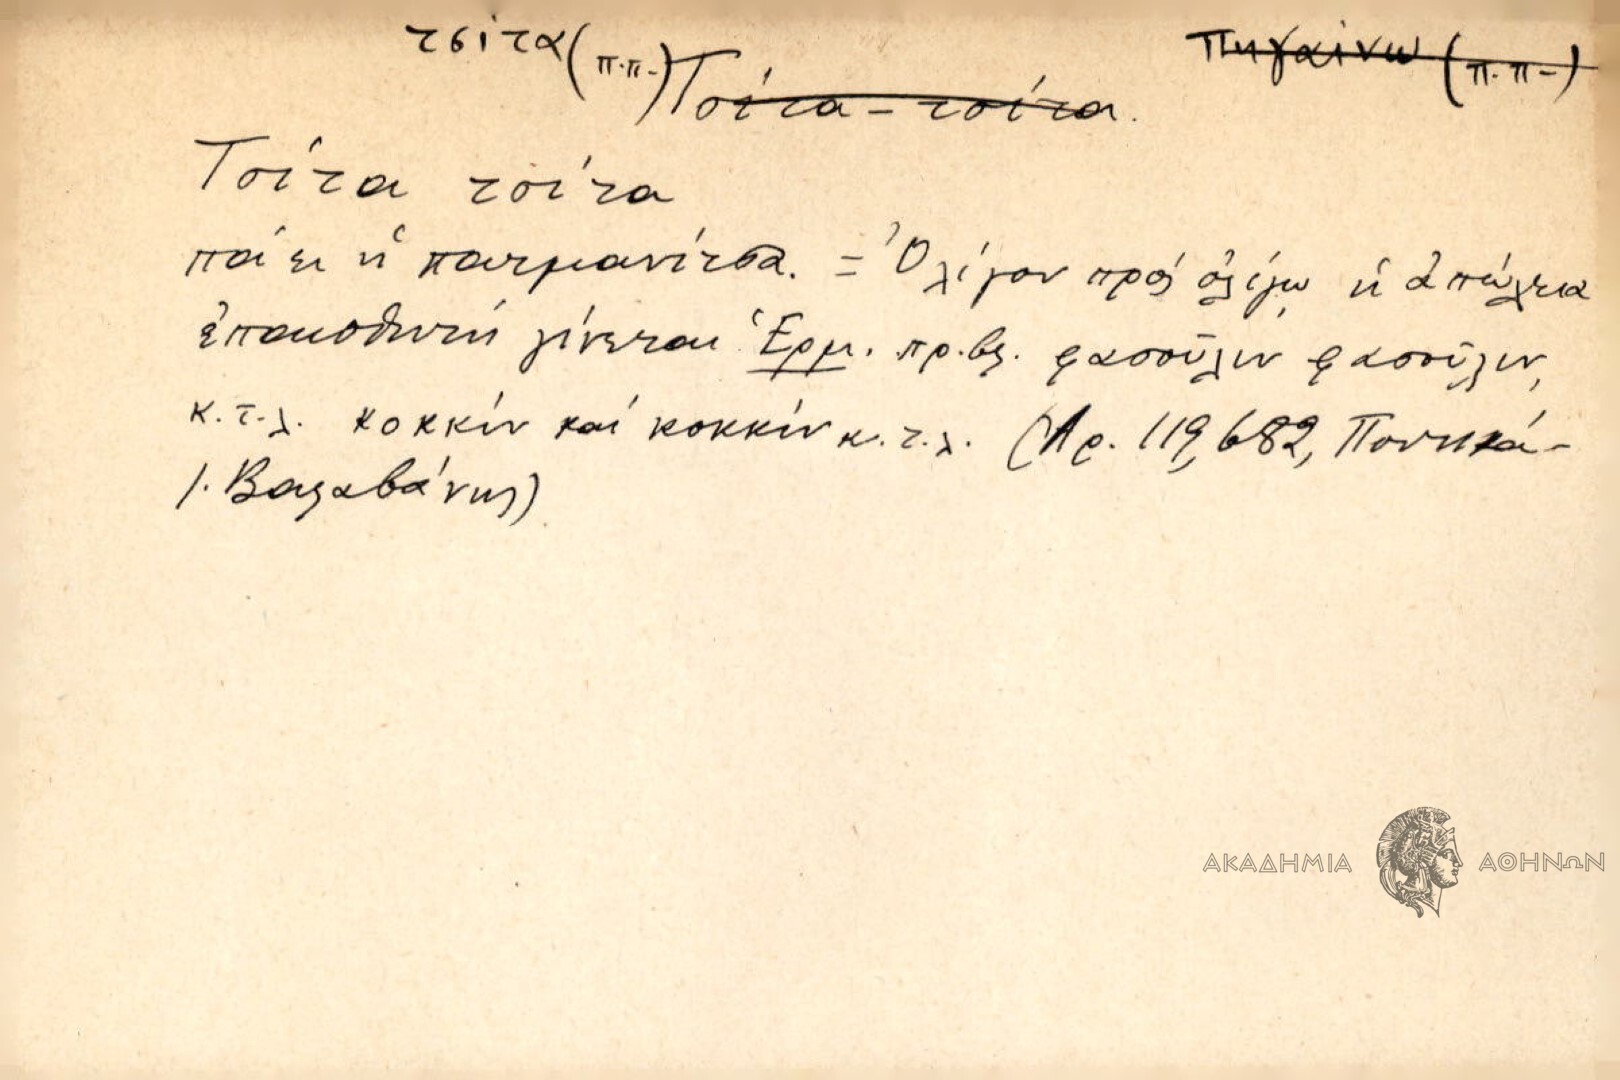 τσίτα (π.π.-) Τσίτα - τσίτα. πηγαίνω (π.π-)
Τσίτα τσίτα
πάει ἡ πατμανίτσα. = Ὀλίγον πρὸς ὀλίγῳ ἡ ἀπώλεια
ἐπαισθητὴ γίνεται Ἑρμ. πρ.βλ. φασούλιν φασούλιν,
κ.τ.λ. κοκκίν καί κοκκίν κ.τ.λ. (Λρ. 119, 682, Ποντικά-
Ι. Βαλαβάνης)
ΑΚΑΔΗΜΙΑ ΑΘΗΝΩΝ